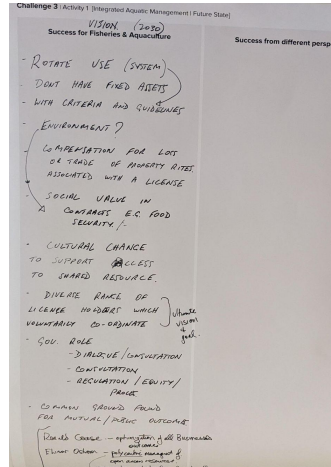 Challenge 3 | Activity 1 [Integrated Aquatic Management | Future State]
VISION (2030)
Success for Fisheries & Aquaculture
Success from different persp
- ROTATE USE (SYSTEM)
- DONT HAVE FIXED ASSETS
- WITH CRITERIA AND GUIDELINES
- ENVIRONMENT?
- COMPENSATION FOR LOSS
OR TRADE OF PROPERTY RITES
ASSOCIATED WITH A LICENSE
- SOCIAL VALUE IN
CONTRACTS E.G. FOOD
SECURITY /-
- CULTURAL CHANGE
TO SUPPORT ACCESS
TO SHARED RESOURCE.
- DIVERSE RANGE OF
LICENCE HOLDERS WHICH
VOLUNTARILY CO-ORDINATE
ultimate
vision &
goal.
- GOV. ROLE
- DIALOGUE / CONSULTATION
- CONSULTATION
- REGULATION / EQUITY /
- COMMON GROUND FOUND
FOR MUTUAL / PUBLIC OUTCOMES
Ronald Coase - optimization of all Businesses
outcomes
Elinor Ostrom - polycentric managmt of
open access resources